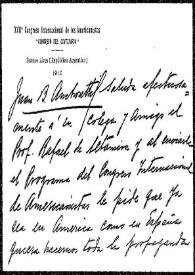 XVIIº Congreso Internacional de los Americanistas
"CONGRESO DEL CENTENARIO"
Buenos Aires (República Argentina)
1910
Juan B Ambrosetti Saluda afectuosa-
mente a su colega y amigo el
Prof. Rafael de Altamira y al enviarle
el Programa del Congreso Internacional
de Americanistas le pide que ya
sea en America como en España
quiera hacernos toda la propaganda